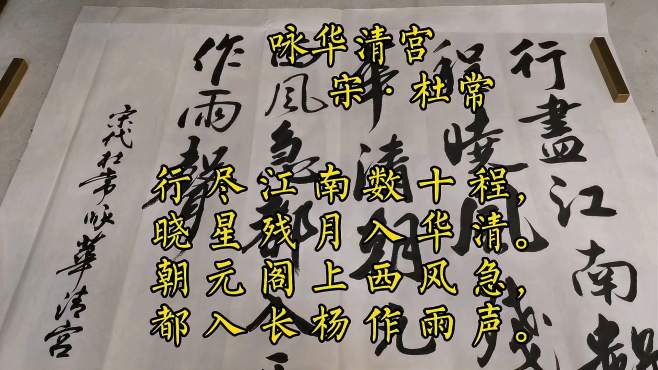 咏华清宫
宋·杜常
行尽江南数十程，
晓星残月入华清。
朝元阁上西风急，
都入长杨作雨声。
行盡江南數
程曉風殘
華清朝元
西風急都入
作雨聲
宋代杜常咏華清宮